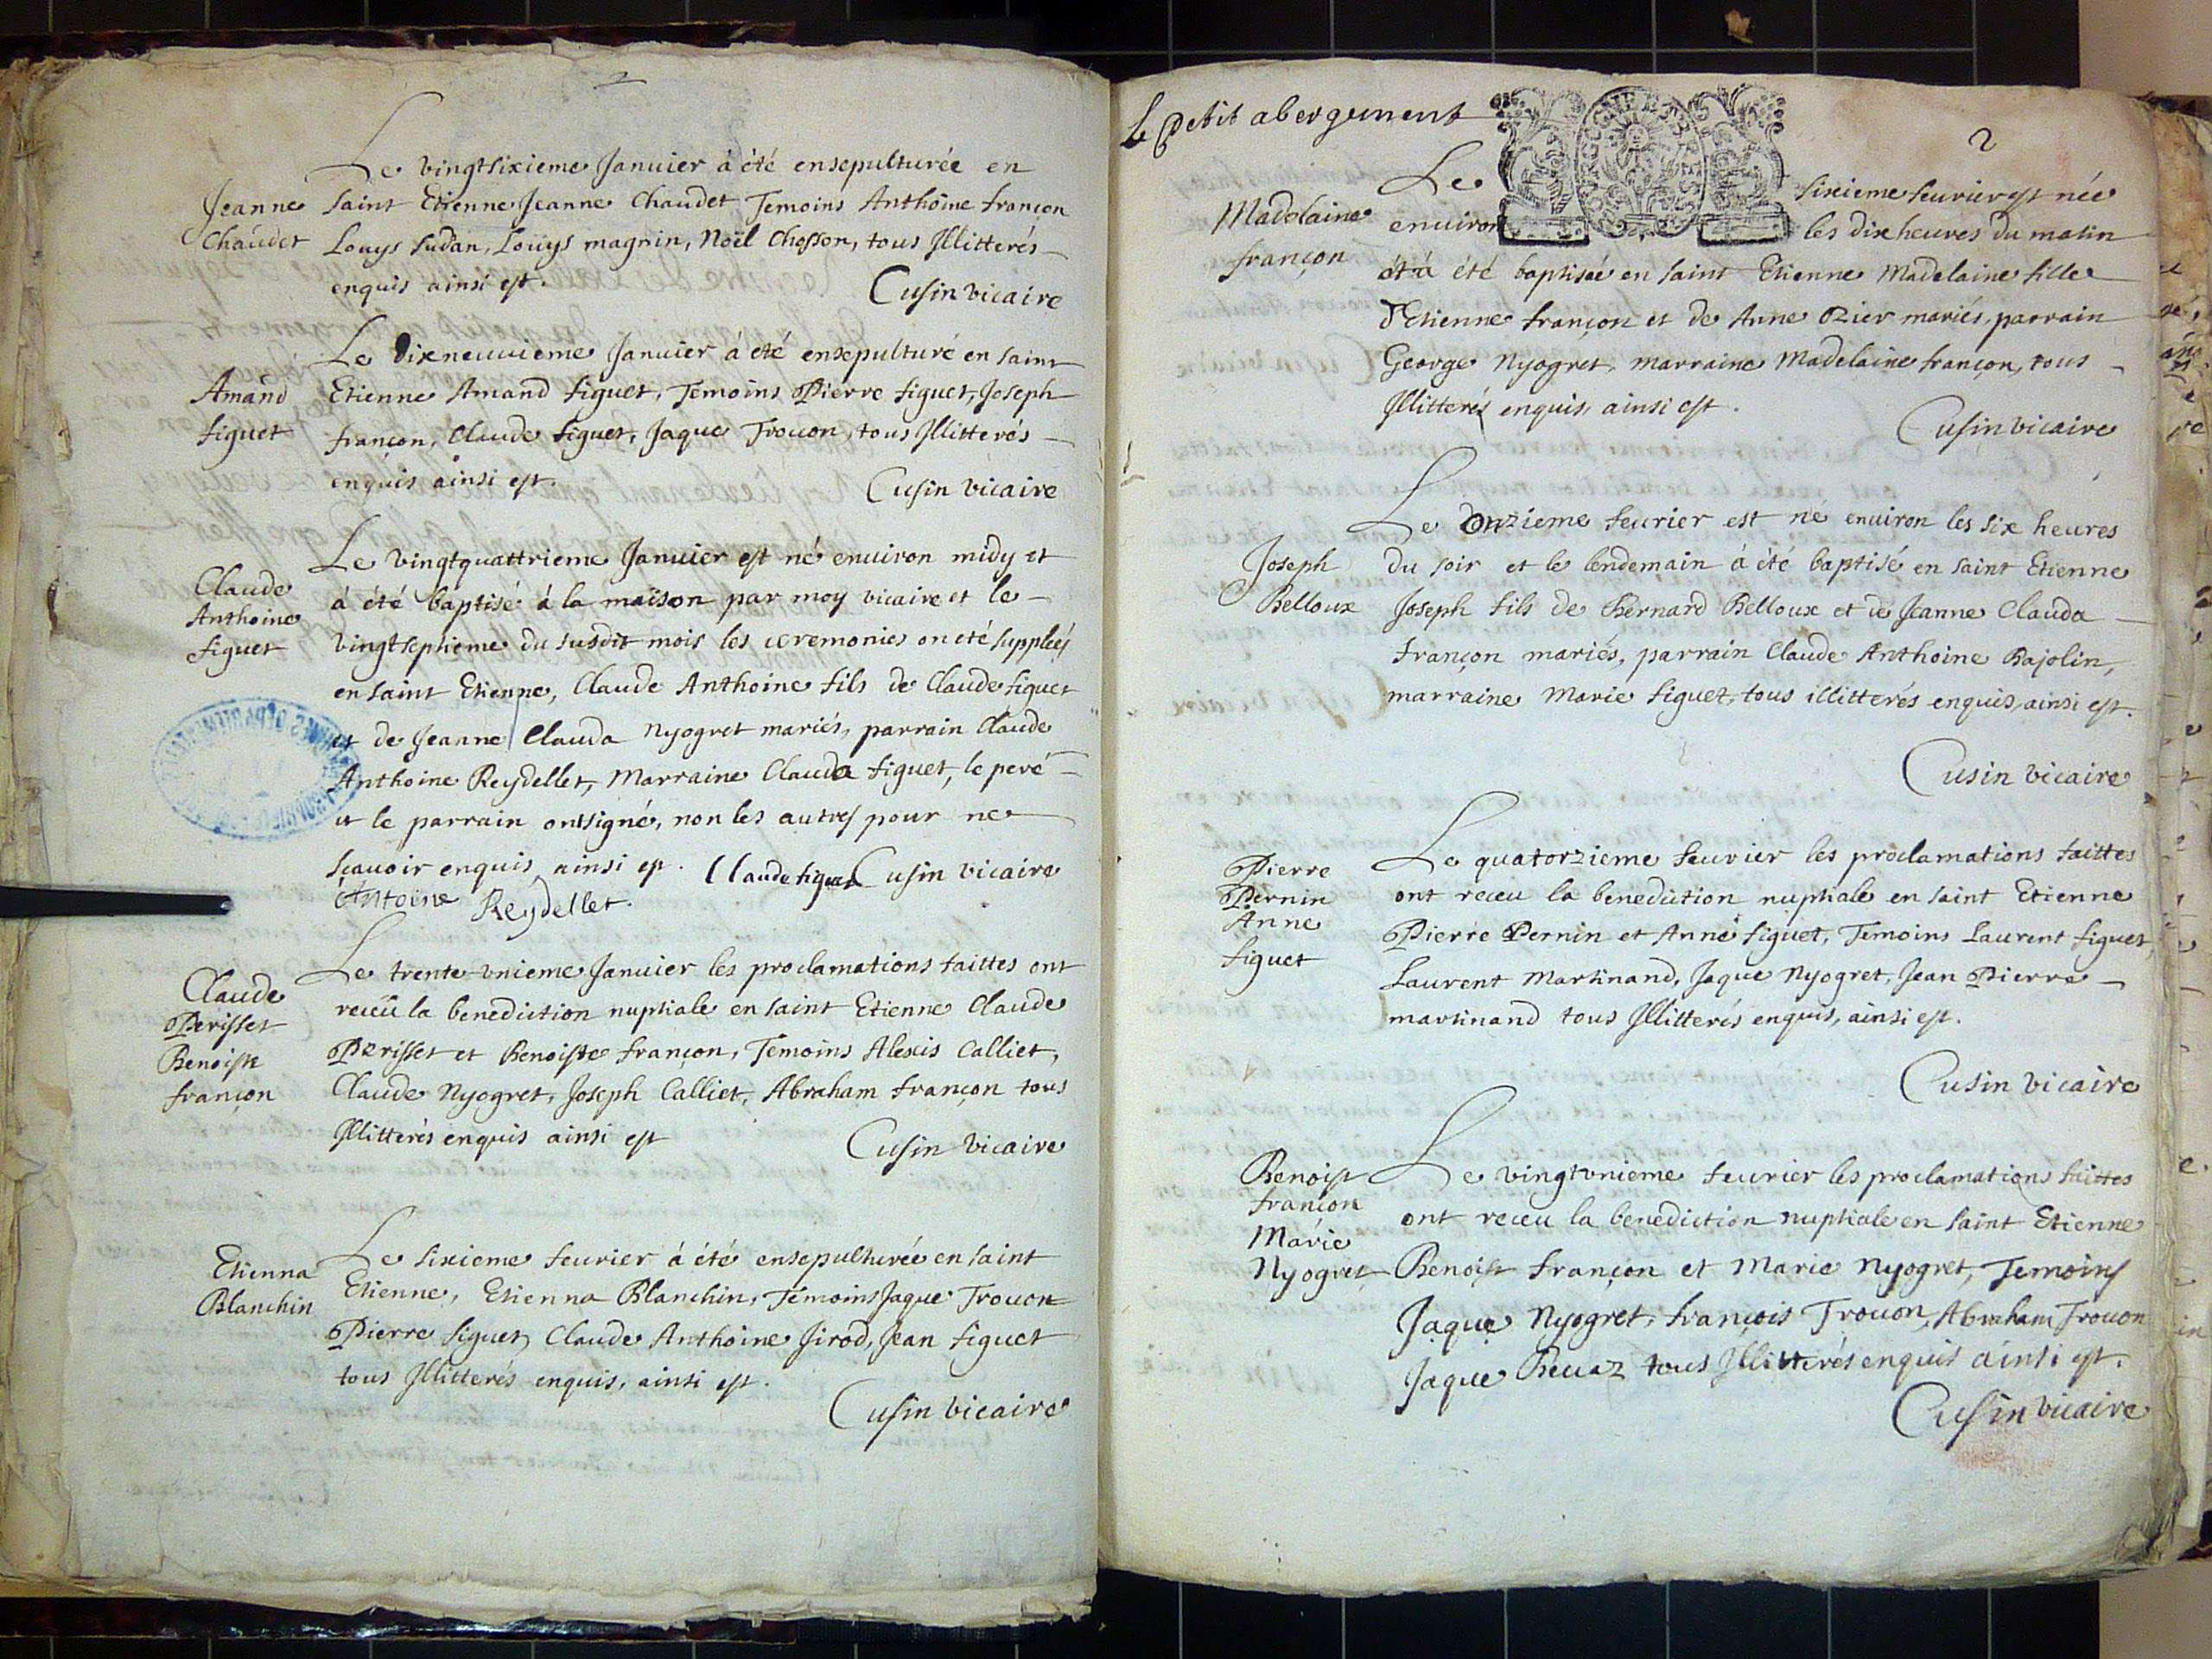 Le vingtsixieme Januier à été ensepulturée en
Jeanne Chaudet
saint Etienne Jeanne Chaudet Temoins Anthoine françon
Louys sudan, Loüys magnin, Noël Chosson, tous Jllitterés
enquis ainsi est.
Cusin vicaire
Le dixneuuieme Januier à eté ensepulturé en saint
Amand figuet
Etienne Amand figuet, Temoins Pierre figuet, Joseph
françon, Claude figuet, Jaque Trouon, tous Jllitterés
enquis ainsi est.
Cusin vicaire
Le vingtquattrieme Januier est né enuiron midy et
Claude
Anthoine
figuet
à été baptisé à la maison par moy vicaire et le
vingtseptieme du susdit mois les ceremonies on eté suppleés
en saint Etienne, Claude Anthoine fils de Claude figuet
et de Jeanne Clauda Nyogret mariés, parrain Claude
Anthoine Reydellet, Marraine Clauda figuet, le peré
et le parrain ont signé, non les autres pour ne
scauoir enquis ainsi est. Claude figuet Cusin vicaire
Antoine Reydellet.
Le trente-vnieme Januier les proclamations faittes ont
Claude
Perisset
Benoiste
françon
receü la benediction nuptiale en saint Etienne Claude
Perisset et Benoiste françon, Temoins Alexis Calliet,
Claude Nyogret, Joseph Calliet, Abraham françon tous
Jllitterés enquis ainsi est
Cusin vicaire
Le sixieme feurier à été ensepulturée en saint
Etienna
Blanchin
Etienne, Etienna Blanchin, Temoins Jaque Trouon
Pierre figuet, Claude Anthoine Jirod, Jean figuet
tous Jllitterés enquis, ainsi est.
Cusin vicaire
Le Petit abergement
2
Le sixieme feurier est née
Madelaine
françon
enuiron les dix heures du matin
et à été baptiseé en saint Etienne Madelaine fille
d'Etienne françon et de Anne Ozier mariés, parrain
George Nyogret, marraine Madelaine françon, tous
Jllitterés enquis, ainsi est.
Cusin vicaire
Le Onzieme feurier est né enuiron les six heures
Joseph
Belloux
du soir et le lendemain à été baptisé en saint Etienne
Joseph fils de Bernard Belloux et de Jeanne Clauda
françon mariés, parrain Claude Anthoine Bajolin,
marraine Marie figuet, tous illitterés enquis, ainsi est.
Cusin vicaire
Le quatorzieme feurier les proclamations faittes
Pierre
Pernin
Anne
figuet
ont receu la benediction nuptiale en saint Etienne
Pierre Pernin et Anne figuet, Temoins Laurent figuet,
Laurent Martinand, Jaque Nyogret, Jean Pierre
martinand tous Jllitterés enquis, ainsi est.
Cusin vicaire
Le vingtvnieme feurier les proclamations faittes
Benoist
françon
Marie
Nyogret
ont receu la benediction nuptiale en saint Etienne
Benoist françon et Marie Nyogret, Temoins
Jaque Nyogret, françois Trouon, Abraham Trouon
Jaque Beuaz tous Jllitterés enquis ainsi est.
Cusin vicaire